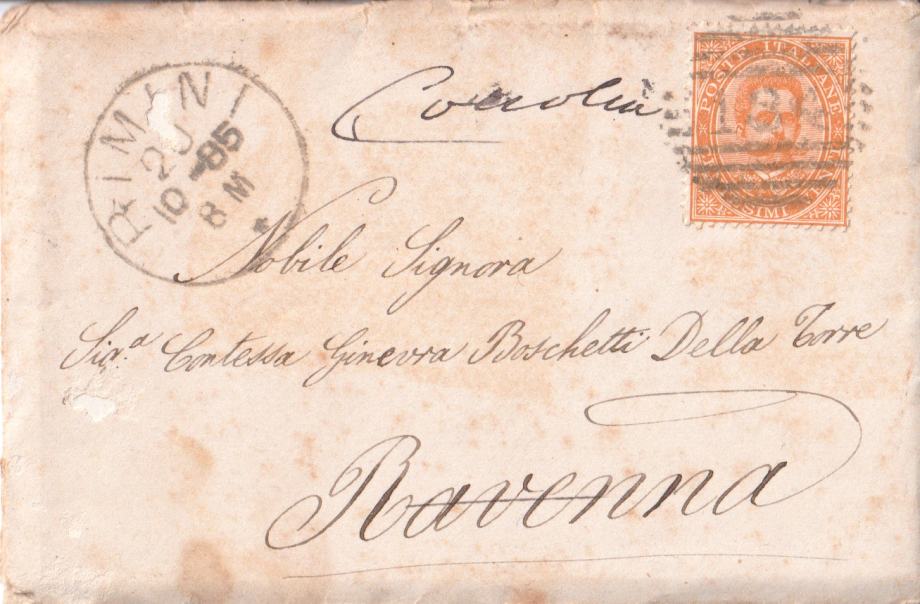 RIMINI
20
10-85
8 M
POSTE ITALIANE
Nobile Signora
Sig.ª Contessa Ginevra Boschetti Della Torre
Ravenna